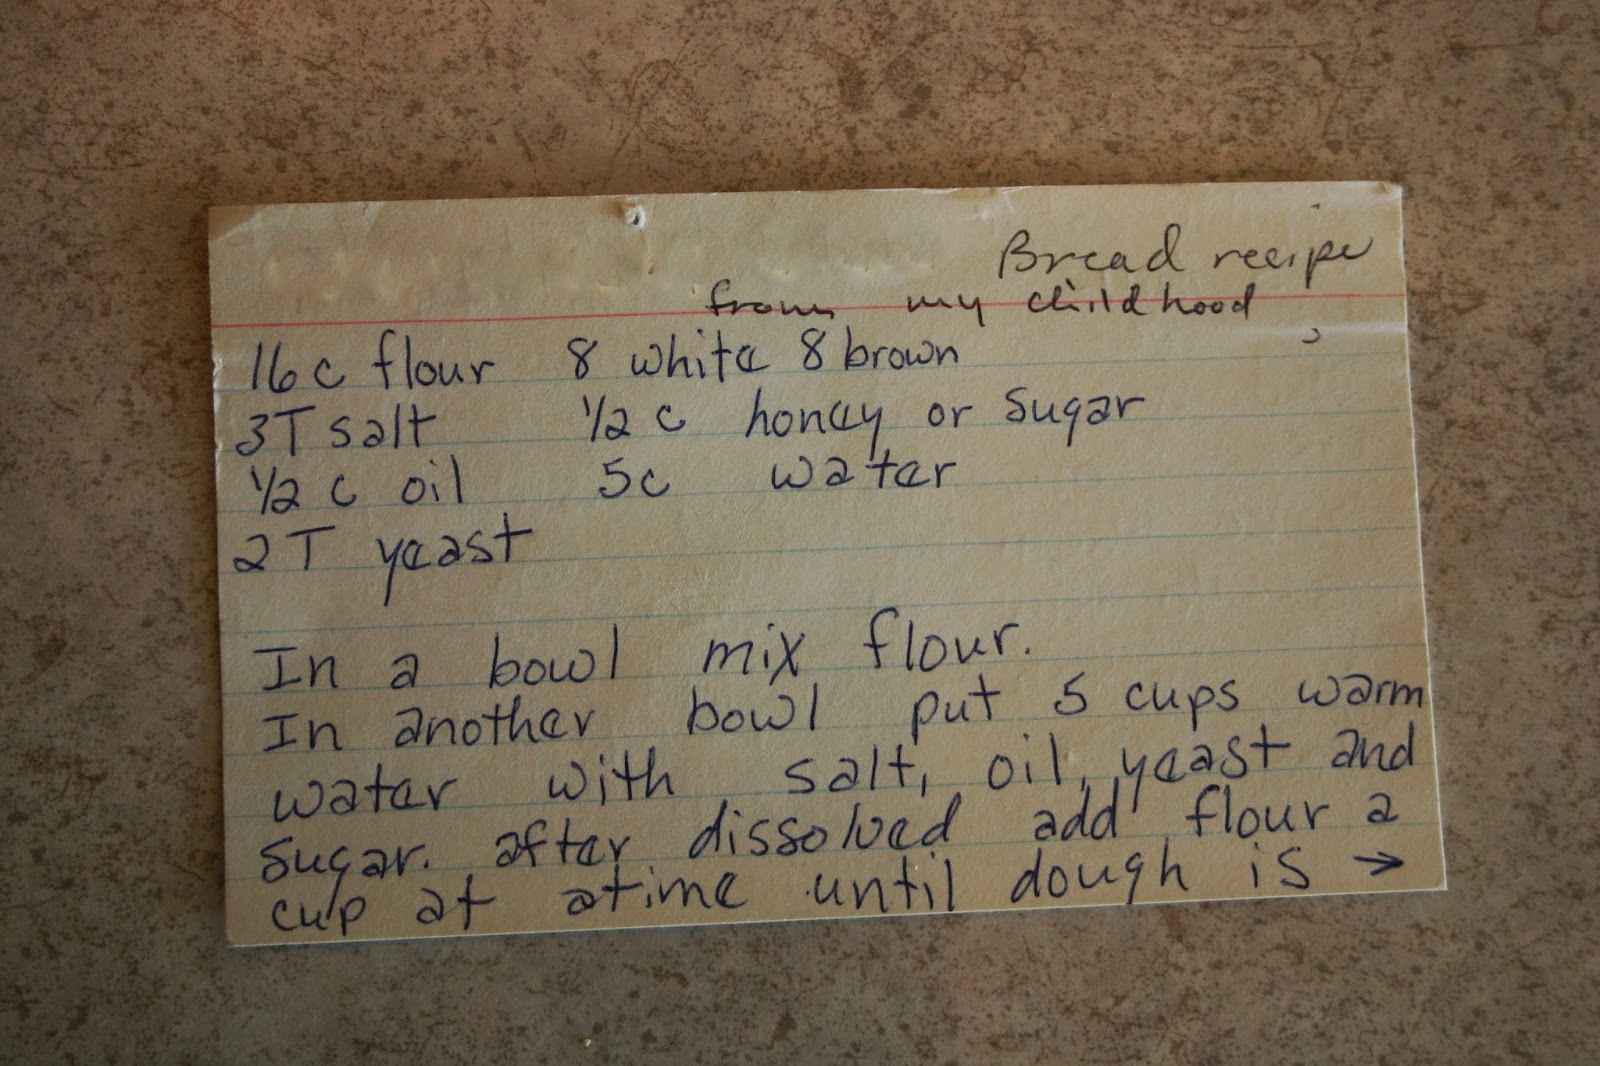 Bread recipe
from my childhood
16 c flour 8 white 8 brown
3T salt 1/2 c honey or sugar
1/2 c oil 5c water
2 T yeast
In a bowl mix flour.
In another bowl put 5 cups warm
water with salt, oil, yeast and
sugar. after dissolved add flour a
cup at atime until dough is →